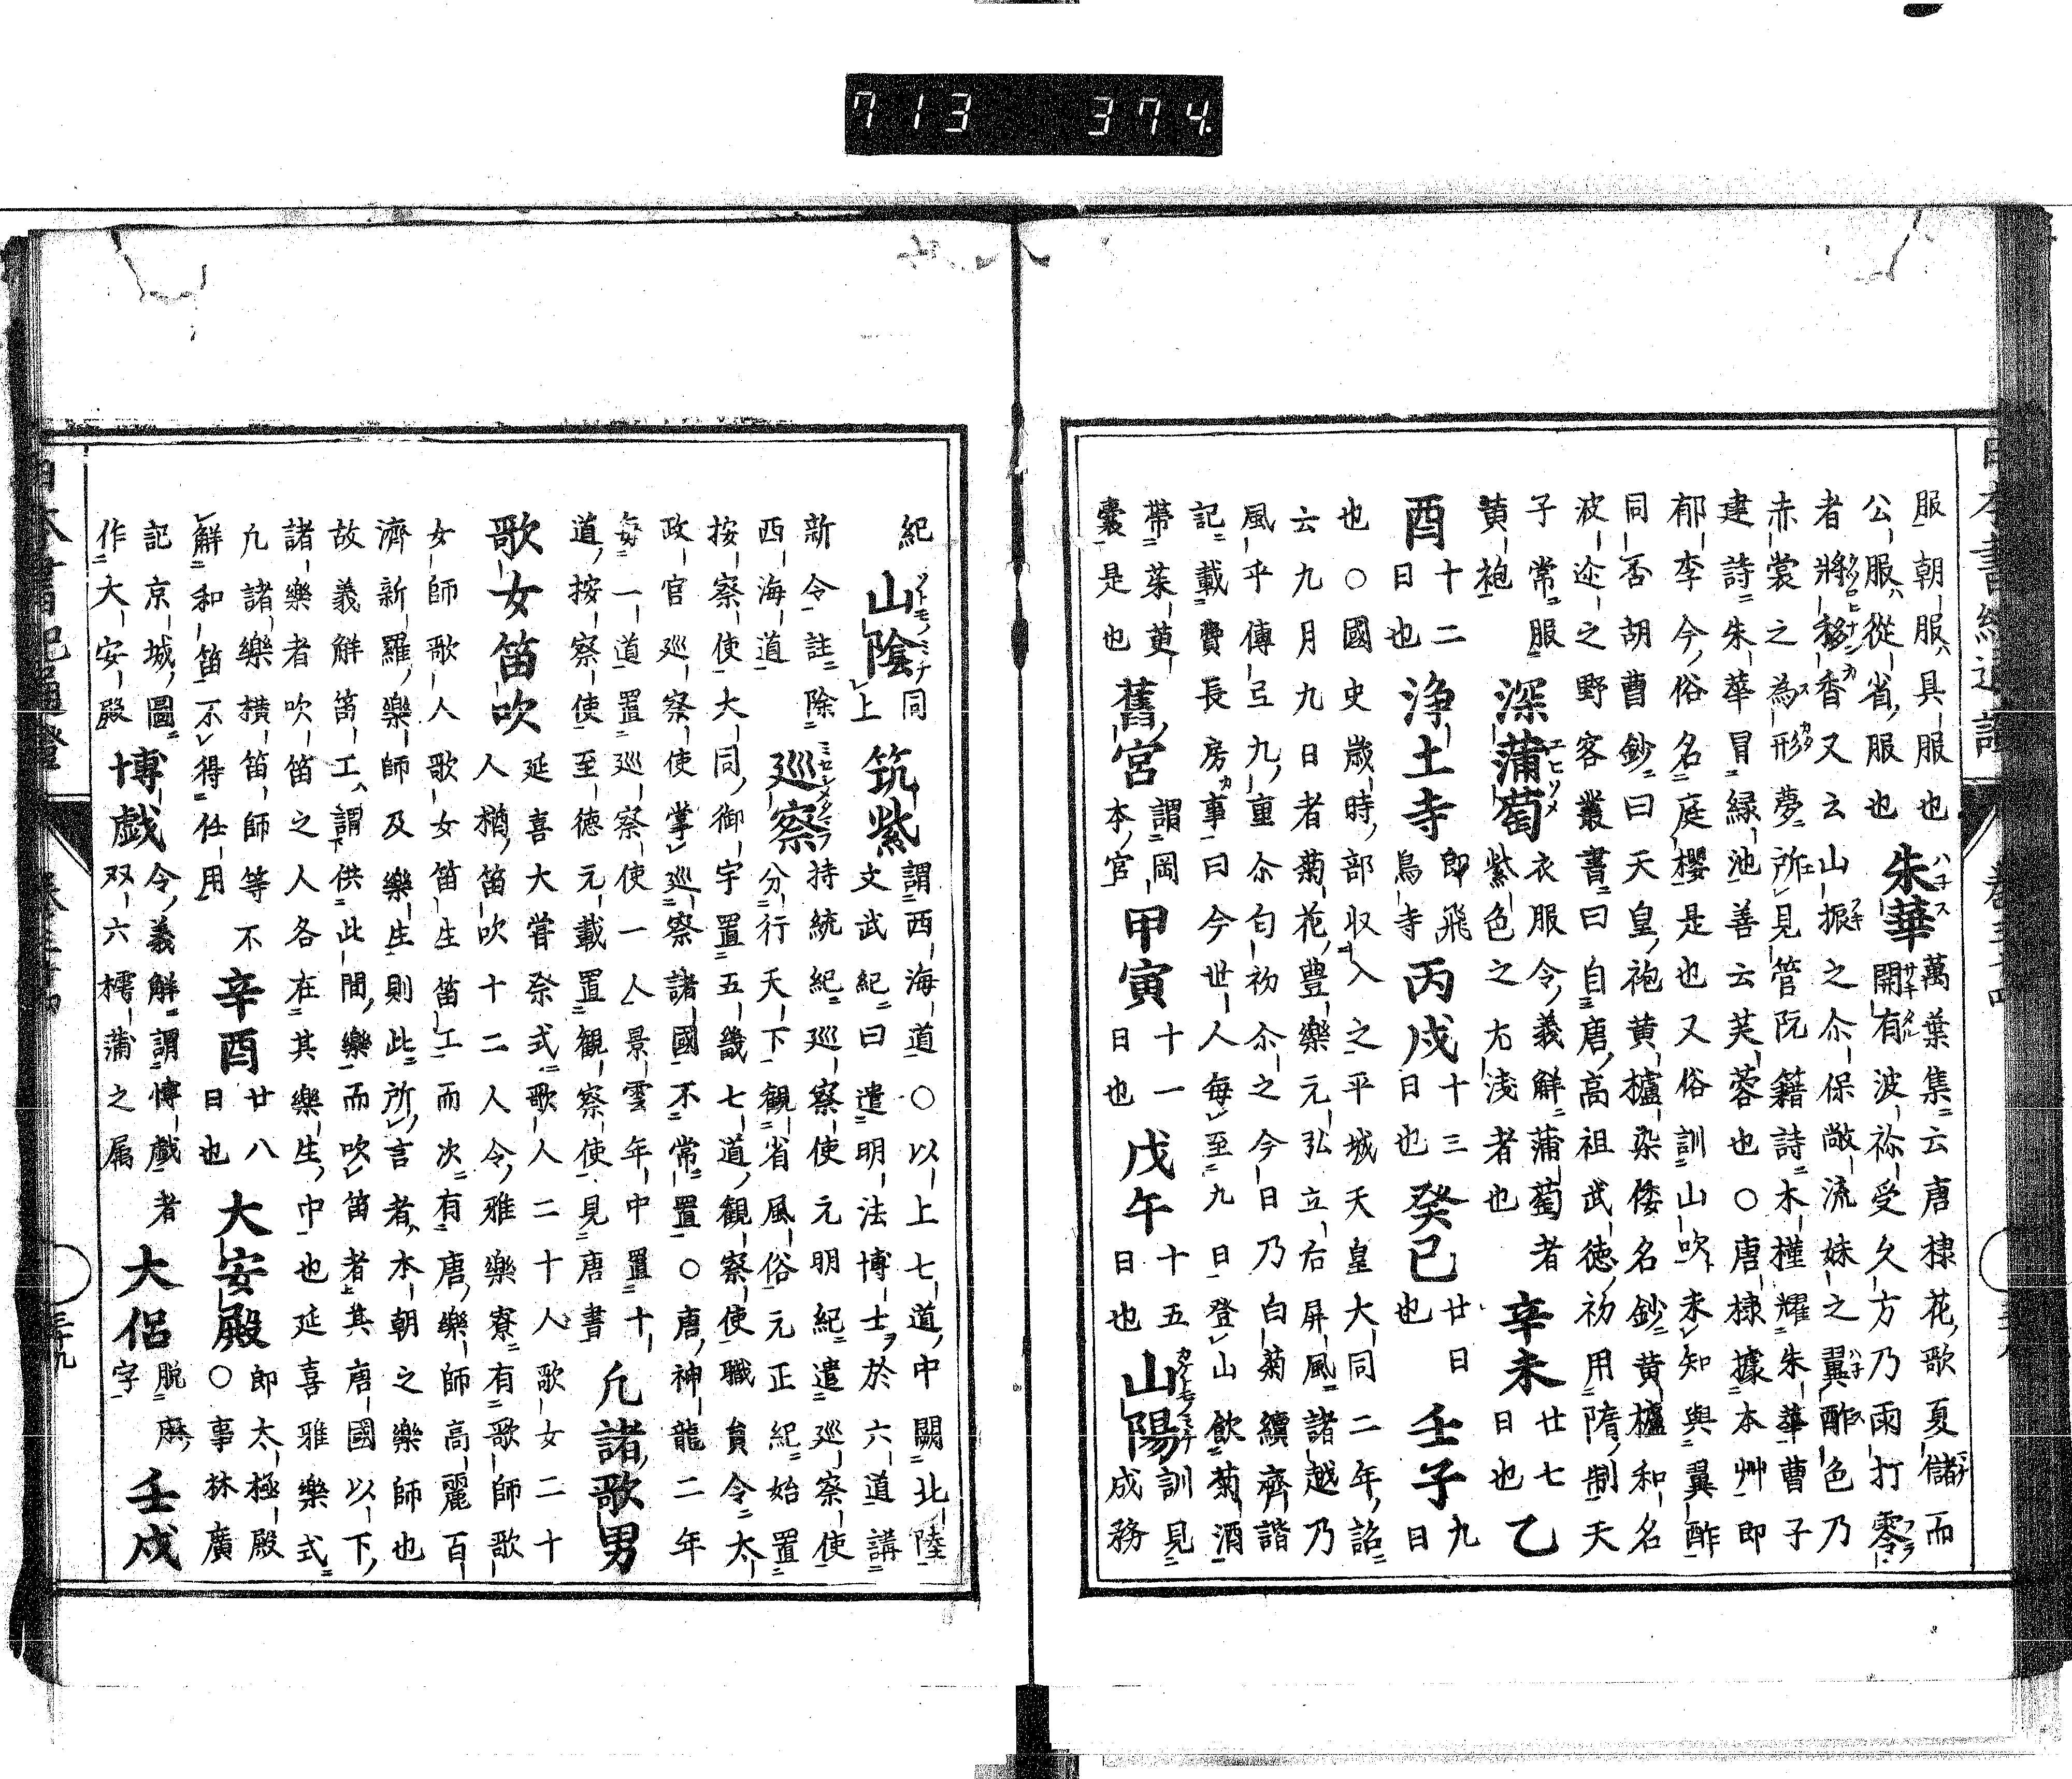 713 374
服朝服具服也
公服從省服也
朱華
萬葉集云唐棣花歌夏儲而
開有波祢受久方乃雨打零
者將移香又云山振之尒保敞流妹之翼酢色乃
赤裳之為形夢所見管阮籍詩木槿耀朱華曹子
建詩朱華冒緑池善云芙蓉也○唐棣據本艸即
郁李今俗名庭櫻是也又俗訓山吹未知與翼酢
同否胡曹鈔曰天皇袍黄櫨染倭名鈔黄櫨和名
波迩之野客叢書曰自唐高祖武徳初用隋制天
子常服
黄袍
深蒲萄
衣服令義解蒲萄者
紫色之㝡淺者也
辛未
廿七
日也
乙
酉
十二
日也
浄土寺
即飛
鳥寺
丙戌
十三
日也
癸巳
廿日
也
壬子
九日
也○國史歳時部収入之平城天皇大同二年詔
云九月九日者菊花豊樂元弘立右屏風諸越乃
風乎傳弖九重尒匂初尒之今日乃白菊續齊諧
記載費長房事曰今世人每至九日登山飲菊酒
帶茱萸
囊是也
舊宮
謂岡
本宮
甲寅
十一
日也
戊午
十五
日也
山陽
訓見
成務
紀
山陰
同
上
筑紫
謂西海道○以上七道中闕北陸
文武紀曰遣明法博士於六道講
新令註除
西海道
巡察
持統紀巡察使元明紀遣巡察使
分行天下觀省風俗元正紀始置
按察使大同御宇置五畿七道觀察使職員令太
政官巡察使掌巡察諸國不常置○唐神龍二年
每一道置巡察使一人景雲年中置十
道按察使至徳元載置觀察使見唐書
凡諸歌男
歌女笛吹
延喜大嘗祭式歌人二十人歌女二十
人楢笛吹十二人令雅樂寮有歌師歌
女師歌人歌女笛生笛工而次有唐樂師高麗百
濟新羅樂師及樂生則此所言者本朝之樂師也
故義解笛工謂供此間樂而吹笛者其唐國以下
諸樂者吹笛之人各在其樂生中也延喜雅樂式
凡諸樂横笛師等不
解和笛不得任用
辛酉
廿八
日也
大安殿
○即太極殿
事林廣
記京城圖
作大安殿
博戯
令義解謂博戯者
双六樗蒲之属
大侶
脱麻
字
壬戌
日本書紀通證